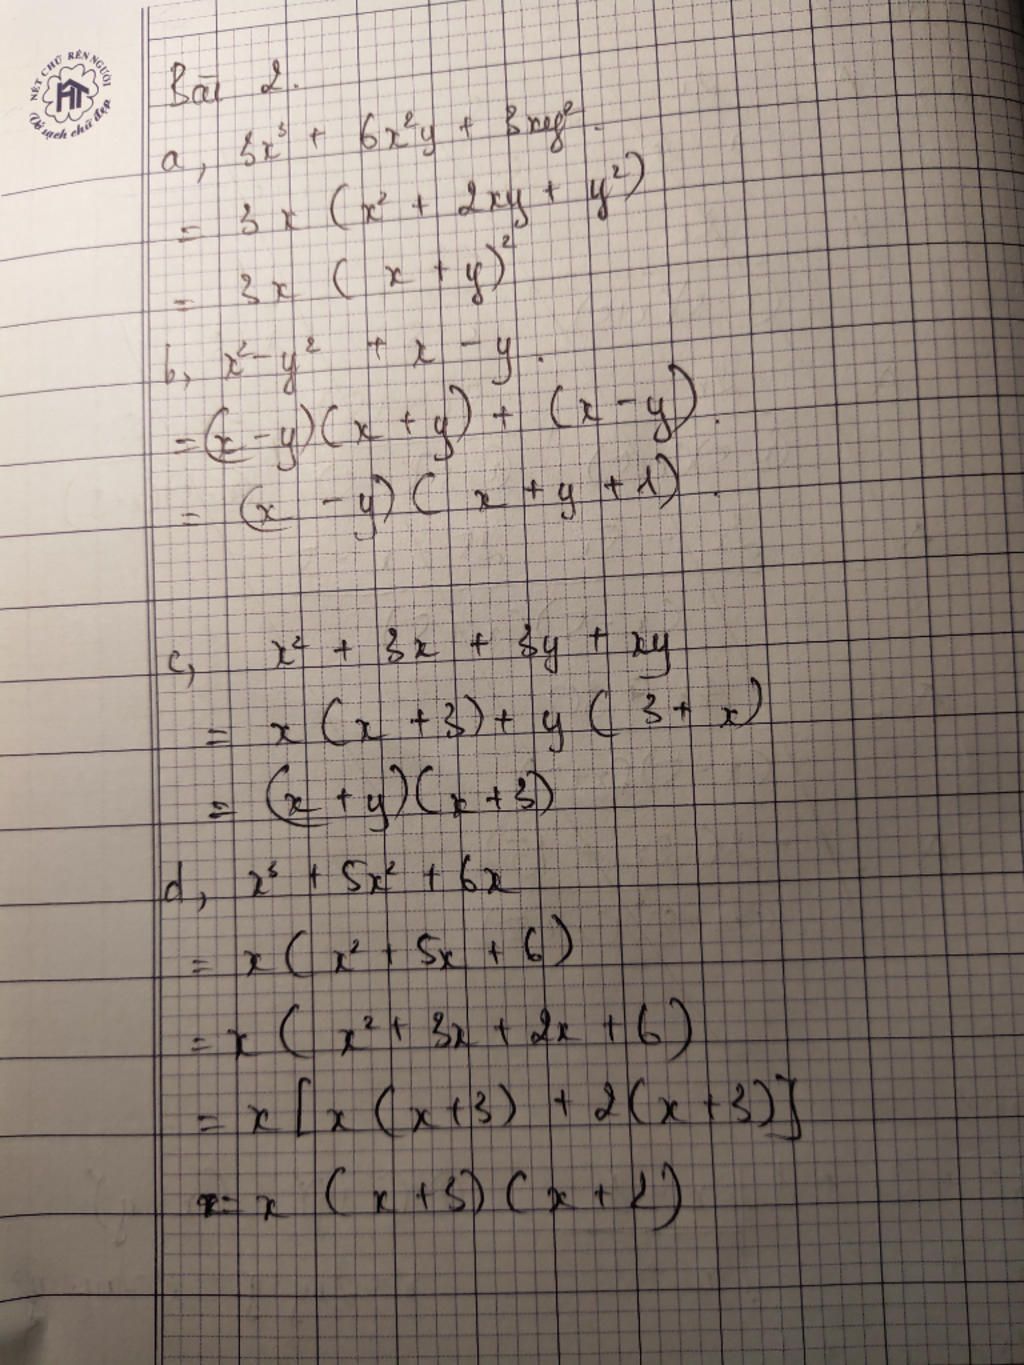 NÉT CHỮ RÈN NGƯỜI
HT
Vở sạch chữ đẹp
Bài 2.
a, 3x³ + 6x²y + 3xy².
= 3x (x² + 2xy + y²)
= 3x (x + y)²
b, x² - y² + x - y.
= (x - y)(x + y) + (x - y).
= (x - y)(x + y + 1).
c, x² + 3x + 3y + xy
= x (x + 3) + y (3 + x)
= (x + y)(x + 3)
d, x³ + 5x² + 6x
= x (x² + 5x + 6)
= x (x² + 3x + 2x + 6)
= x [x (x + 3) + 2 (x + 3)]
= x (x + 3) (x + 2)